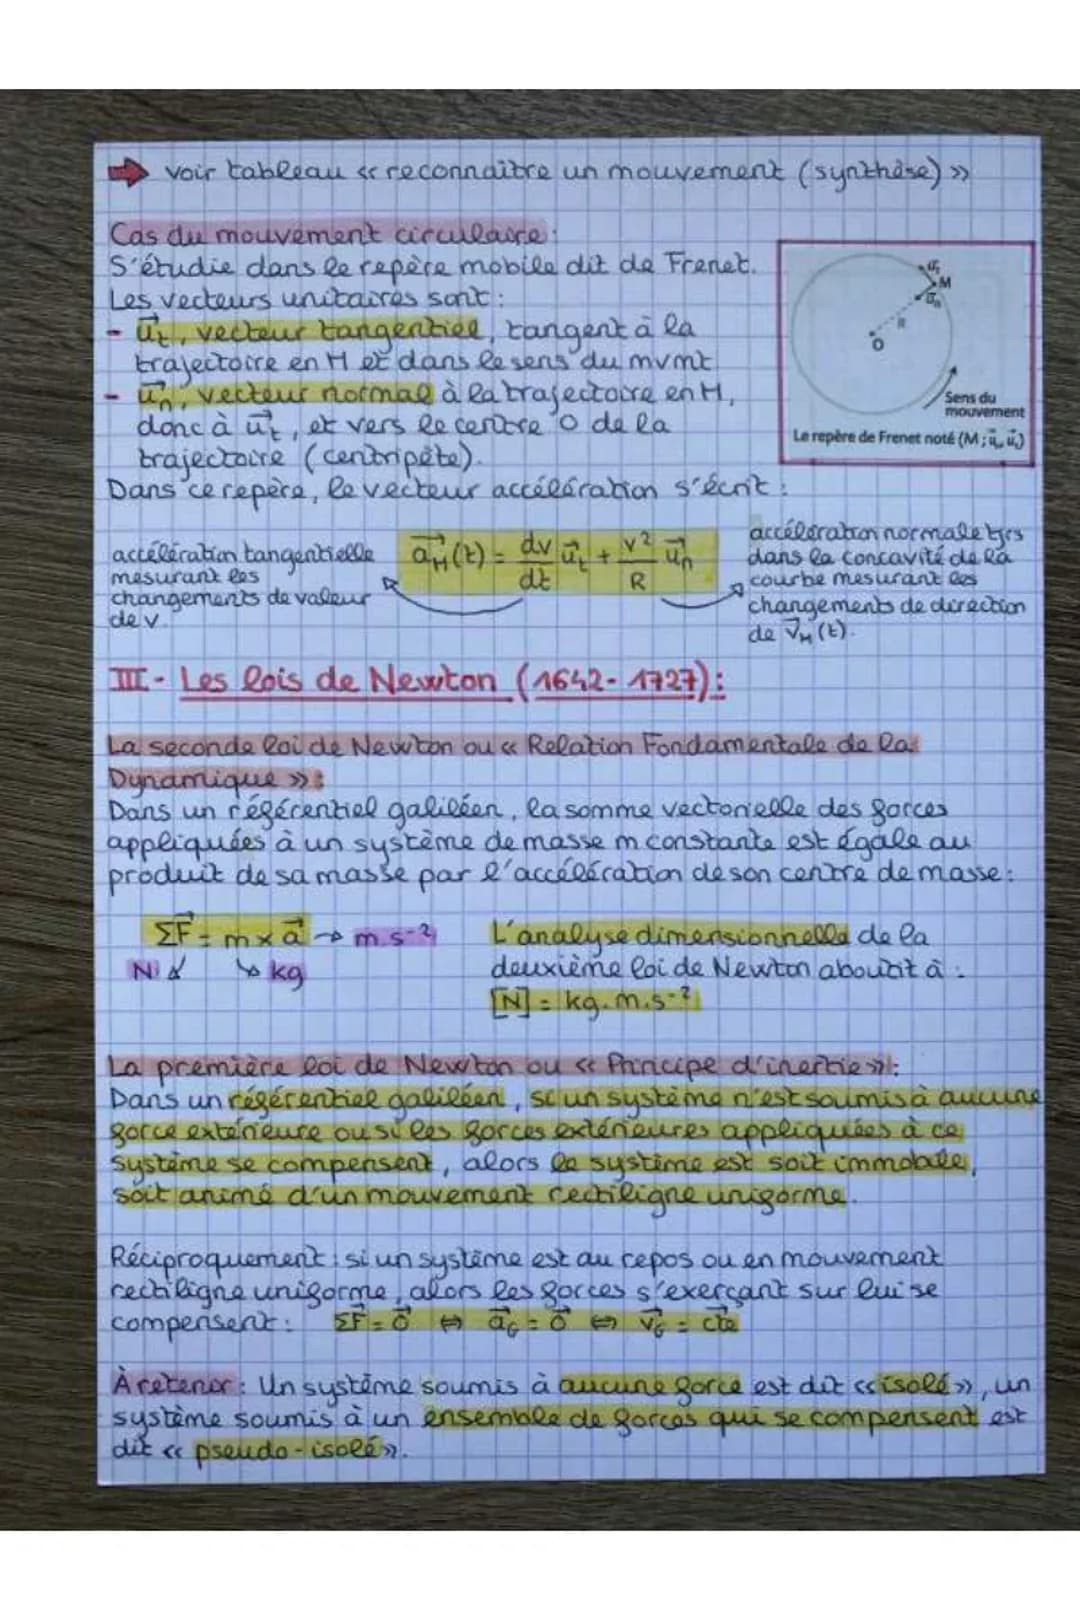 ➡ voir tableau « reconnaître un mouvement (synthèse) »
Cas du mouvement circulaire :
S'étudie dans le repère mobile dit de Frenet.
Les vecteurs unitaires sont :
- u⃗t, vecteur tangentiel, tangent à la
trajectoire en M et dans le sens du mvmt
- u⃗n, vecteur normal à la trajectoire en M,
donc à u⃗t, et vers le centre O de la
trajectoire (centripète).
u⃗t
M
u⃗n
R
O
Sens du
mouvement
Le repère de Frenet noté (M ; u⃗n, u⃗t)
Dans ce repère, le vecteur accélération s'écrit :
accélération tangentielle
mesurant les
changements de valeur
de v
a⃗M(t) = dv/dt u⃗t + v²/R u⃗n
accélération normale tjrs
dans la concavité de la
courbe mesurant les
changements de direction
de v⃗M(t).
III - Les lois de Newton (1642-1727) :
La seconde loi de Newton ou « Relation Fondamentale de la
Dynamique » :
Dans un référentiel galiléen, la somme vectorielle des forces
appliquées à un système de masse m constante est égale au
produit de sa masse par l'accélération de son centre de masse :
ΣF⃗ = m x a⃗ → m.s⁻²
N kg
L'analyse dimensionnelle de la
deuxième loi de Newton aboutit à :
[N] = kg.m.s⁻²
La première loi de Newton ou « Principe d'inertie » :
Dans un référentiel galiléen, si un système n'est soumis à aucune
force extérieure ou si les forces extérieures appliquées à ce
système se compensent, alors le système est soit immobile,
soit animé d'un mouvement rectiligne uniforme.
Réciproquement : si un système est au repos ou en mouvement
rectiligne uniforme, alors les forces s'exerçant sur lui se
compensent : ΣF⃗ = 0⃗ ⇔ a⃗G = 0⃗ ⇔ v⃗G = cte
À retenir : Un système soumis à aucune force est dit « isolé », un
système soumis à un ensemble de forces qui se compensent est
dit « pseudo-isolé ».